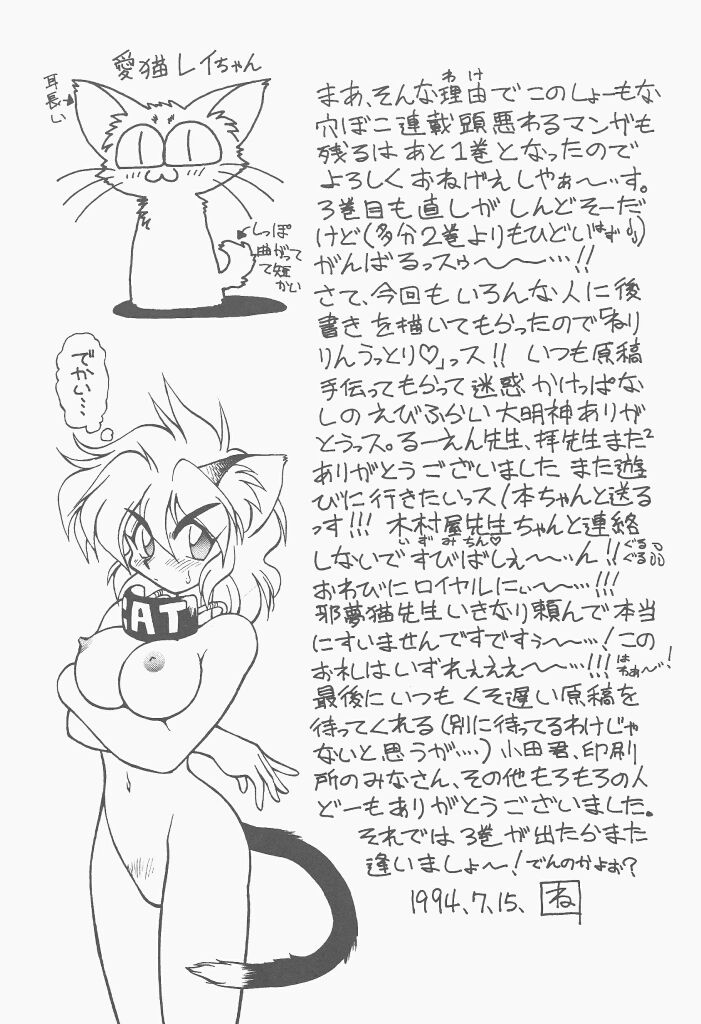 愛猫レイちゃん
耳長い
しっぽ
曲がって
て短
かい
でかい…
CAT
まあ、そんな理由でこのしょーもな
わけ
穴ぼこ連載頭悪わるマンガも
残るはあと1巻となったので
よろしくおねげえしやぁ〜…す。
3巻目も直しがしんどそーだ
けど(多分2巻よりもひどいはず)
がんばるっスゥ〜〜〜…!!
さて、今回もいろんな人に後
書きを描いてもらったので「ねり
りんうっとり♡」っス!! いつも原稿
手伝ってもらって迷惑かけっぱな
しのえびふらい大明神ありが
とうっス。るーえん先生、拝先生また2
ありがとうございました また遊
びに行きたいっス!本ちゃんと送る
っす!!! 木村屋先生ちゃんと連絡
いずみちん♡
しないですびばしぇ〜〜…ん!!ぐるぐる
おわびにロイヤルにぃ〜〜…!!!
邪夢猫先生いきなり頼んで本当
にすいませんですですぅ〜〜…!この
お礼はいずれぇぇぇ〜〜…!!!はわぁ〜!
最後にいつもくそ遅い原稿を
待ってくれる(別に待ってるわけじゃ
ないと思うが…)小田君、印刷
所のみなさん、その他もろもろの人
どーもありがとうございました。
それでは3巻が出たらまた
逢いましょ〜!でんのかよぉ?
1994.7.15. ね